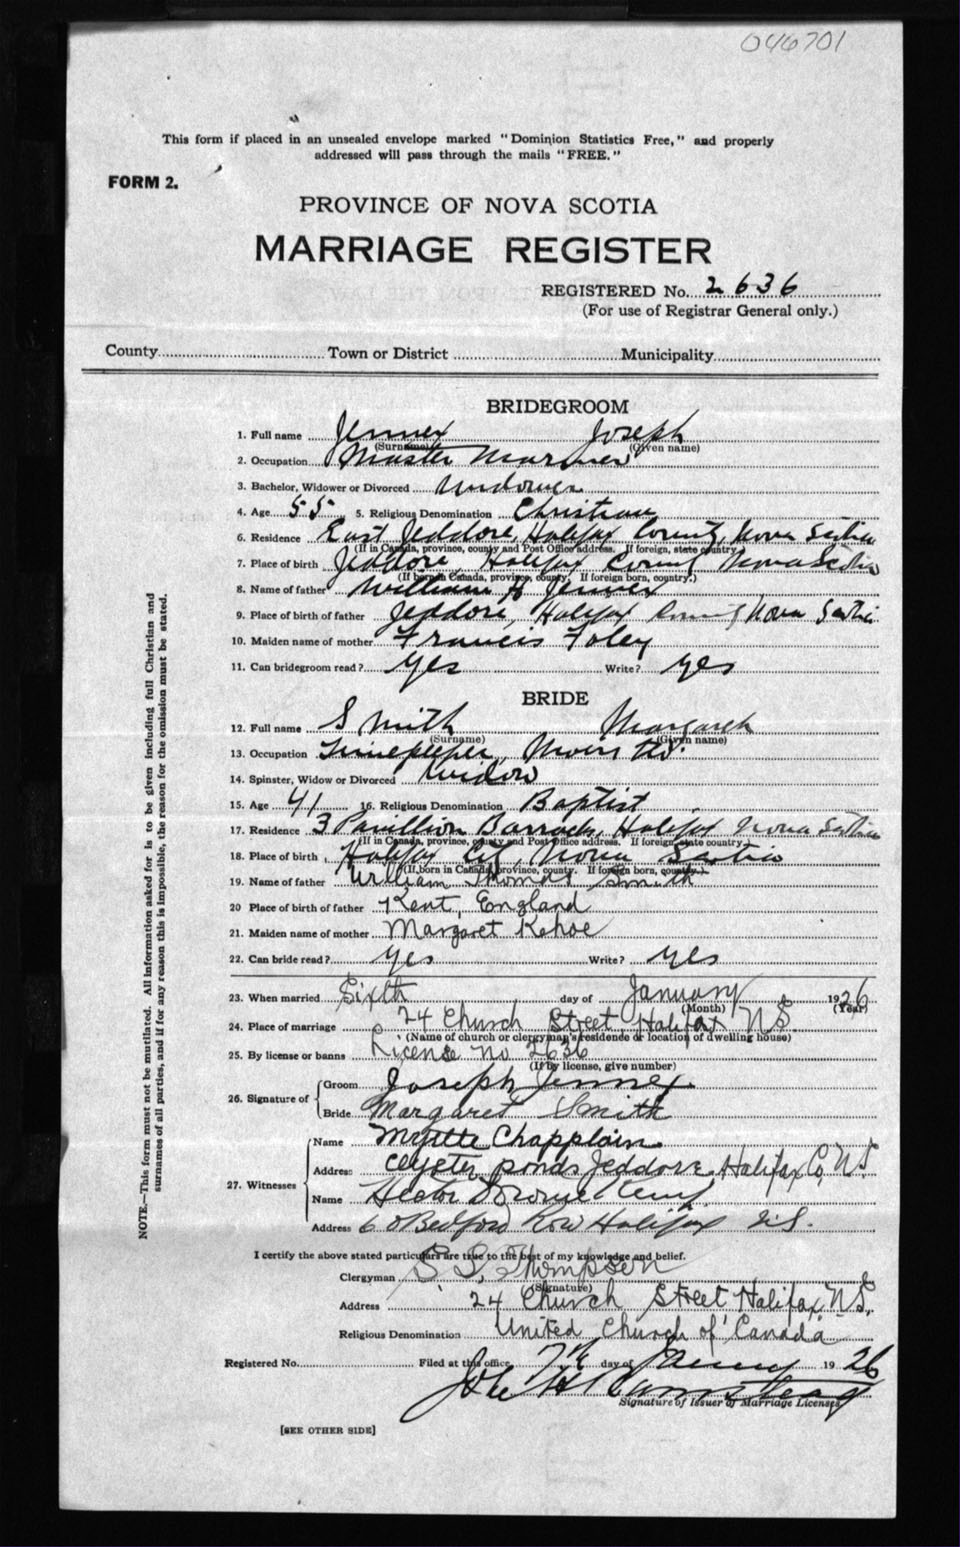 046701
This form if placed in an unsealed envelope marked "Dominion Statistics Free," and properly
addressed will pass through the mails "FREE."
FORM 2.
PROVINCE OF NOVA SCOTIA
MARRIAGE REGISTER
REGISTERED No. 2636
(For use of Registrar General only.)
County Town or District Municipality
BRIDEGROOM
1. Full name Jennex Joseph
(Surname) (Given name)
2. Occupation Master Mariner
3. Bachelor, Widower or Divorced Widower
4. Age 55 5. Religious Denomination Christian
6. Residence East Jeddore, Halifax County, Nova Scotia
(If in Canada, province, county and Post Office address. If foreign, state country.)
7. Place of birth Jeddore, Halifax County Nova Scotia
(If born in Canada, province, county. If foreign born, country.)
8. Name of father William H Jennex
9. Place of birth of father Jeddore, Halifax County Nova Scotia
10. Maiden name of mother Francis Foley
11. Can bridegroom read? Yes Write? Yes
BRIDE
12. Full name Smith Margaret
(Surname) (Given name)
13. Occupation Timekeeper,
14. Spinster, Widow or Divorced Widow
15. Age 41 16. Religious Denomination Baptist
17. Residence 3 Pavillion Barracks, Halifax Nova Scotia
(If in Canada, province, county and Post Office address. If foreign state country.)
18. Place of birth Halifax City, Nova Scotia
(If born in Canada, province, county. If foreign born, country.)
19. Name of father William Thomas Smith
20 Place of birth of father Kent, England
21. Maiden name of mother Margaret Kehoe
22. Can bride read? Yes Write? Yes
23. When married Sixth day of January 1926
(Month) (Year)
24. Place of marriage 24 Church Street, Halifax N.S.
(Name of church or clergyman's residence or location of dwelling house)
25. By license or banns License No 2636
(If by license, give number)
26. Signature of Groom Joseph Jennex
Bride Margaret Smith
27. Witnesses Name Myrtle Chapplain
Address Oyster ponds Jeddore, Halifax Co, N.S.
Name Hector
Address 60 Bedford Row Halifax N.S.
I certify the above stated particulars are true to the best of my knowledge and belief.
Clergyman S. S. Thompson
(Signature)
Address 24 Church Street Halifax, N.S.
Religious Denomination United Church of Canada
Registered No. Filed at this office 7th day of January 1926
Signature of Issuer of Marriage Licenses
[SEE OTHER SIDE]
NOTE.—This form must not be mutilated. All information asked for is to be given including full Christian and
surnames of all parties, and if for any reason this is impossible, the reason for the omission must be stated.